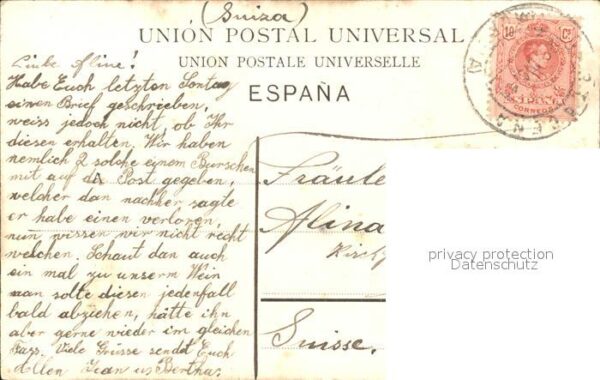 (Suiza)
UNIÓN POSTAL UNIVERSAL
UNION POSTALE UNIVERSELLE
ESPAÑA
10 Cs
CORREOS
Liebe Aline!
Habe Euch letzten Sontag
einen Brief geschrieben,
weiss jedoch nicht, ob Ihr
diesen erhalten. Wir haben
nemlich 2 solche einem Burschen
mit auf die Post gegeben,
welcher dan nachher sagte
er habe einen verloren,
nun wissen wir nicht recht
welchen. Schaut dan auch
ein mal zu unserm Wein
man solte diesen jedenfall
bald abziehen, hätte ihn
aber gerne wieder im gleichen
Fass. Viele Grüsse sendet Euch
Allen Jean us Bertha
Fräule
Alina
Suisse.
privacy protection
Datenschutz